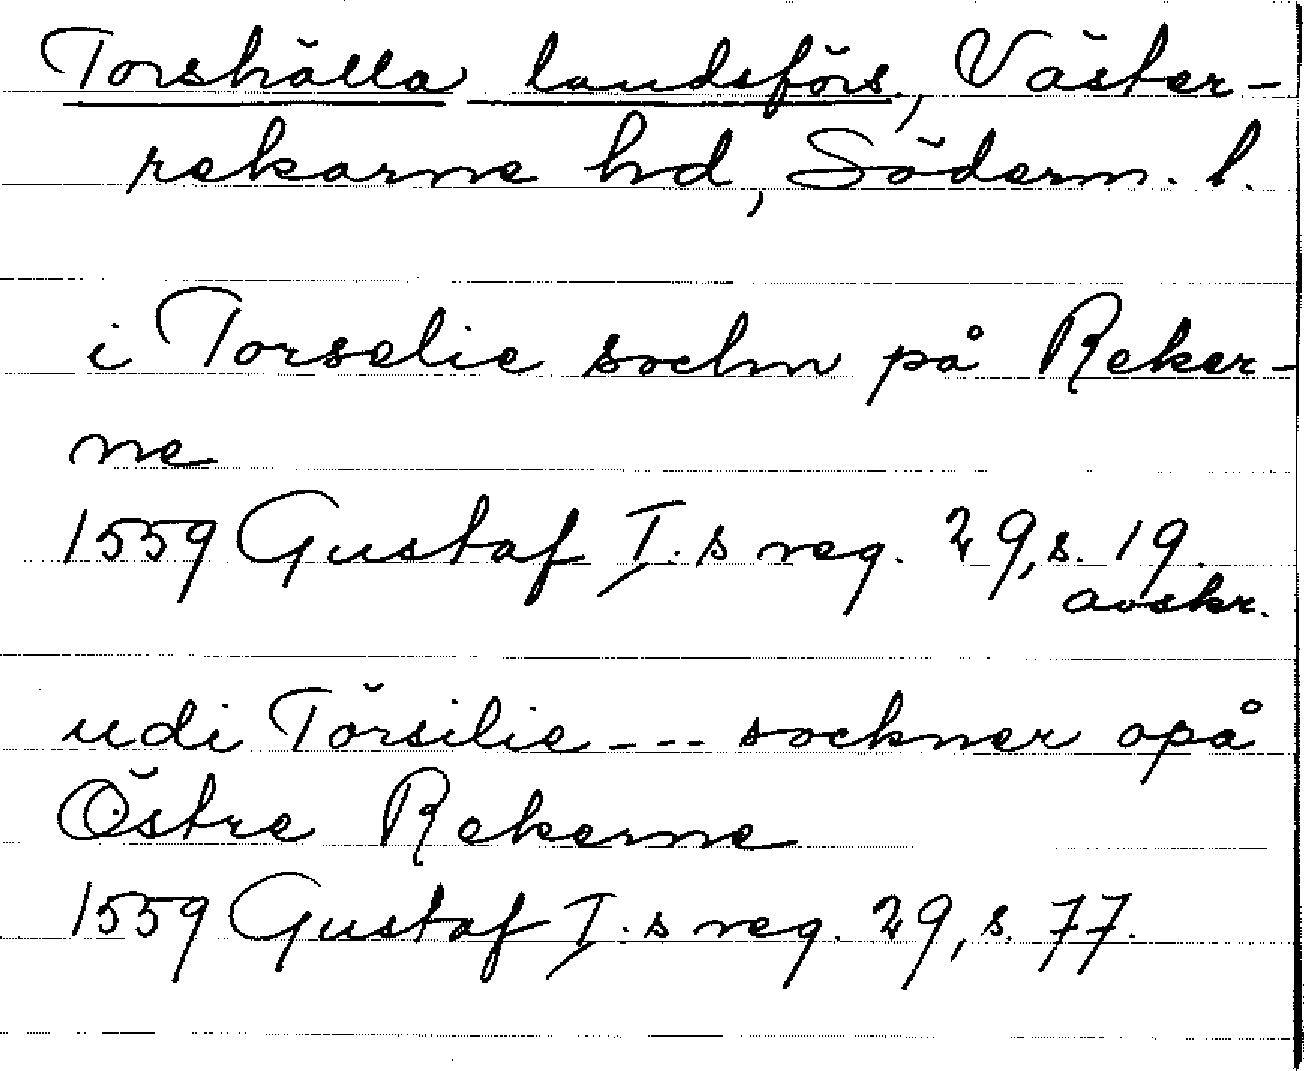 Torshälla landsförs., Väster-
rekarne hd, Söderm. l.
i Torselie sochn på Reker-
ne
1559 Gustaf I.s reg. 29, s. 19.
avskr.
udi Törsilie --- sockner opå
Östre Rekerne
1559 Gustaf I.s reg. 29, s. 77.